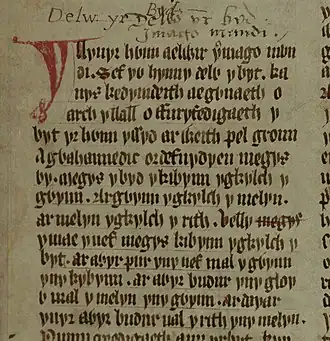 Delw yr Byd yr hwn
Imago mundi.
Yllyuyr hwnn aelwir ymago mun
di. Sef yw hynny delw y byt. ka
nys kedymdeith ae gwnaeth o
arch y llall o ffuryfedigaeth y
byt yr hwnn yssyd ar weith pel gronn
Agbahanredic o defnydyeu megys
wy. megys y byd y kibynn ygkylch y
gwynn. Ar gwynn ygkylch y melyn.
ar melyn ygkylch y rith. velly megys
ymae y nef megys kibynn ygkylch y
byt. ar awyr pur yny nef mal y gwynn
yny kybynn. ar awyr budur yny gloy
w mal y melyn yny gwynn. ar dayar
ynyr awyr budur ual y rith yny melyn.